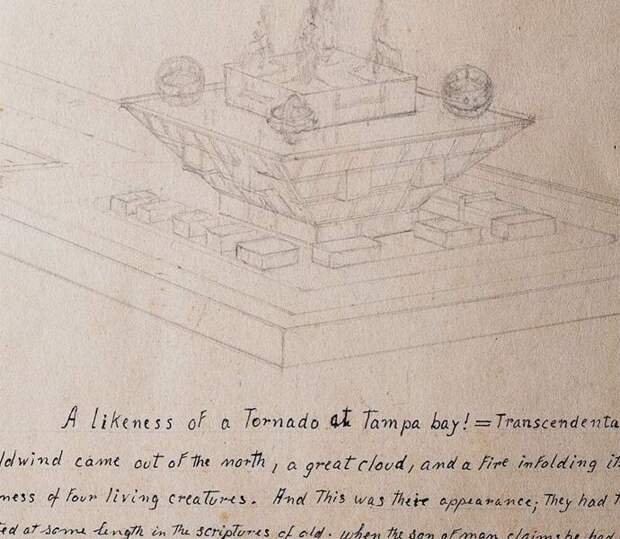 A likeness of a Tornado at Tampa bay! = Transcendenta
ldwind came out of the north, a great cloud, and a Fire infolding it
ness of Four living creatures. And This was their appearance; They had t
ed at some length in the scriptures of old. when the son of man claims he had